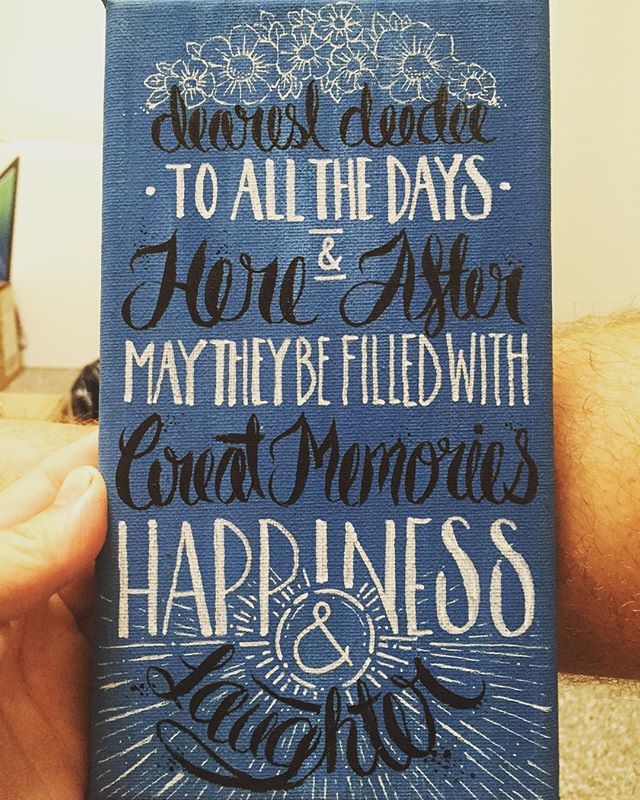 dearest deedee
· TO ALL THE DAYS ·
&
Here After
MAY THEY BE FILLED WITH
Great Memories
HAPPINESS
&
Laughter